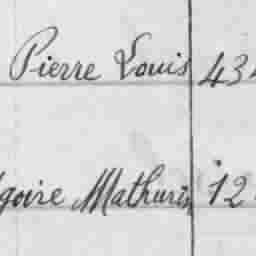 Pierre Louis 434
goire Mathurin 12